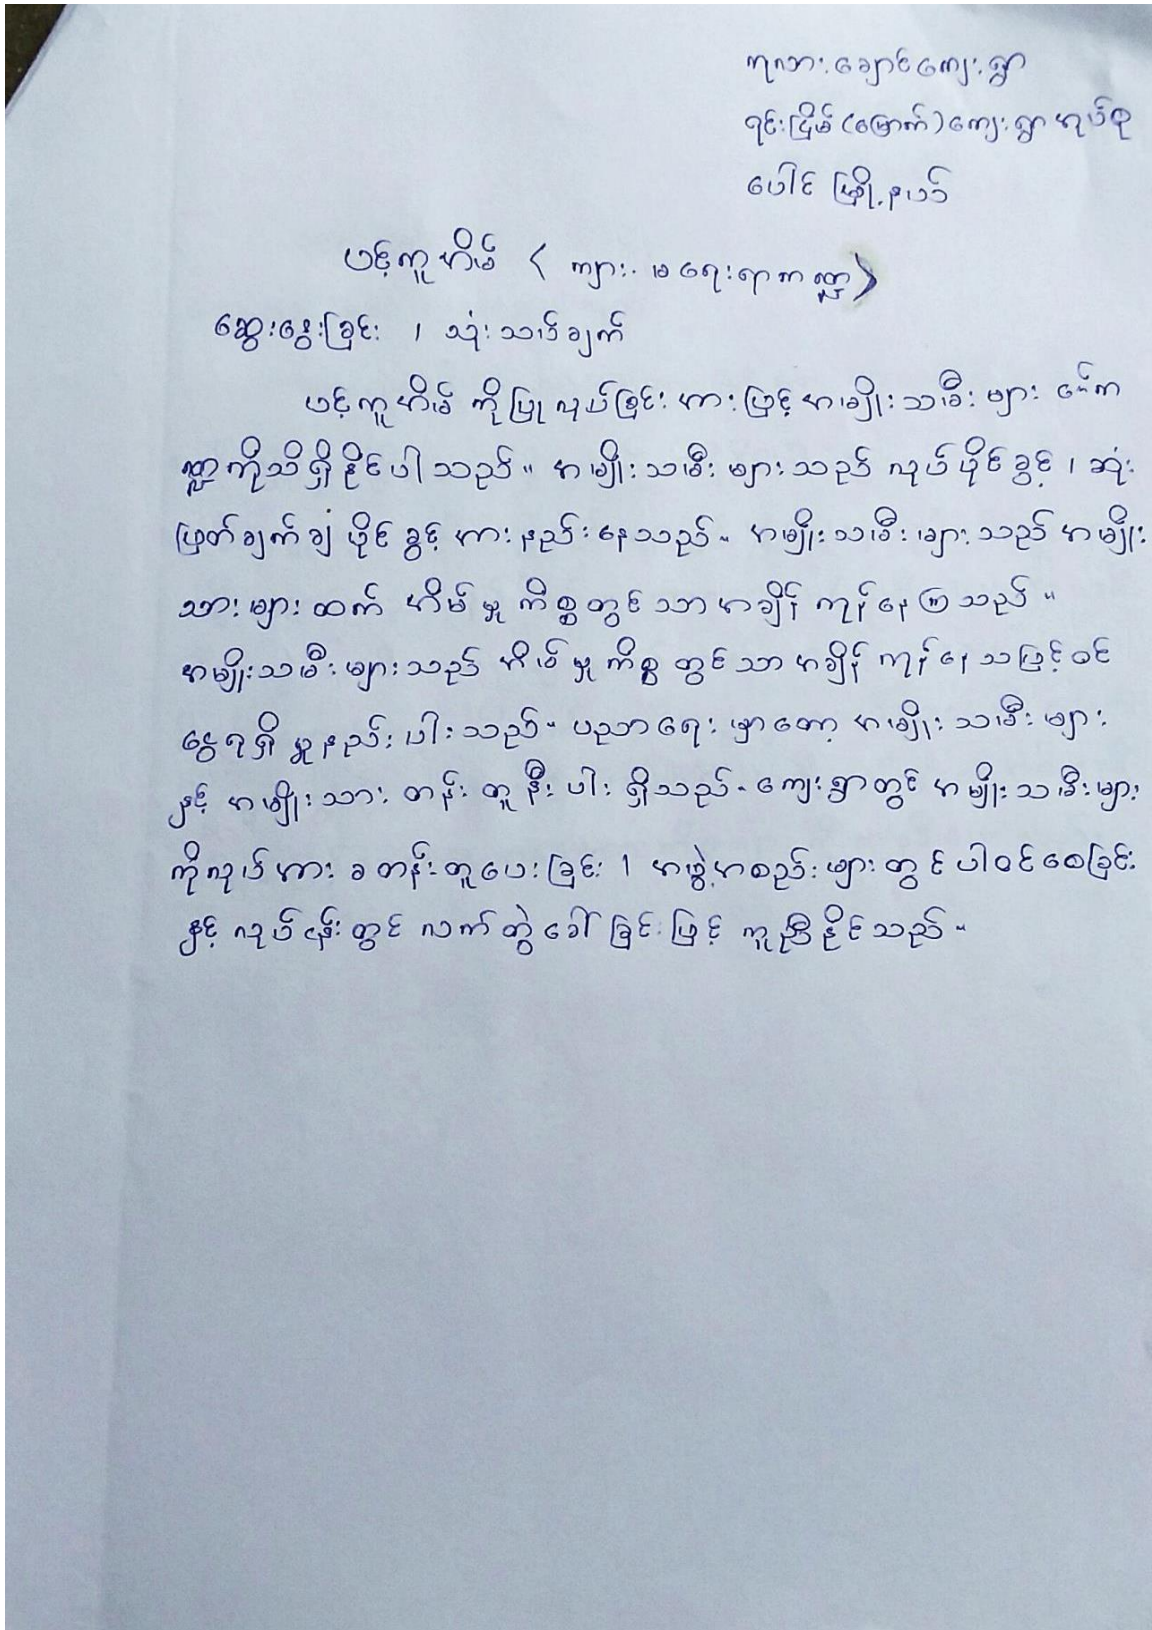 ကုလားချောင်ကျေးရွာ
ရင်းငြိမ်(မြောက်)ကျေးရွာအုပ်စု
ပေါင်မြို့နယ်
ပင့်ကူအိမ် ( ကျား၊မရေးရာကဏ္ဍ)
ဆွေးနွေးခြင်း ၊ သုံးသပ်ချက်
ပင့်ကူအိမ် ကိုပြုလုပ်ခြင်း အားဖြင့် အမျိုးသမီး များ ၏က
ဏ္ဍကိုသိရှိနိုင်ပါသည်။ အမျိုးသမီး များသည် လုပ်ပိုင်ခွင့် ၊ ဆုံး
ဖြတ်ချက်ချ ပိုင်ခွင့် အားနည်းနေသည်။ အမျိုးသမီးများသည် အမျိုး
သားများထက် အိမ်မှု ကိစ္စတွင်သာ အချိန် ကုန်နေကြသည်။
အမျိုးသမီးများသည် အိမ်မှုကိစ္စတွင်သာ အချိန် ကုန်နေသဖြင့် ဝင်
ငွေရရှိမှုနည်းပါးသည်။ ပညာရေး မှာတော့ အမျိုးသမီး များ
နှင့် အမျိုးသား တန်းတူနီးပါး ရှိသည်။ ကျေးရွာတွင် အမျိုးသမီးများ
ကိုလုပ်အားခတန်းတူပေးခြင်း ၊ အဖွဲ့အစည်းများတွင်ပါဝင်စေခြင်း
နှင့် လုပ်ငန်းတွင် လက်တွဲခေါ်ခြင်းဖြင့် ကူညီနိုင်သည်။